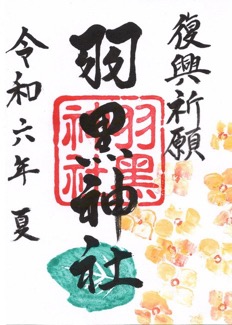 復興祈願
羽黒神社
羽黒神社
令和六年 夏